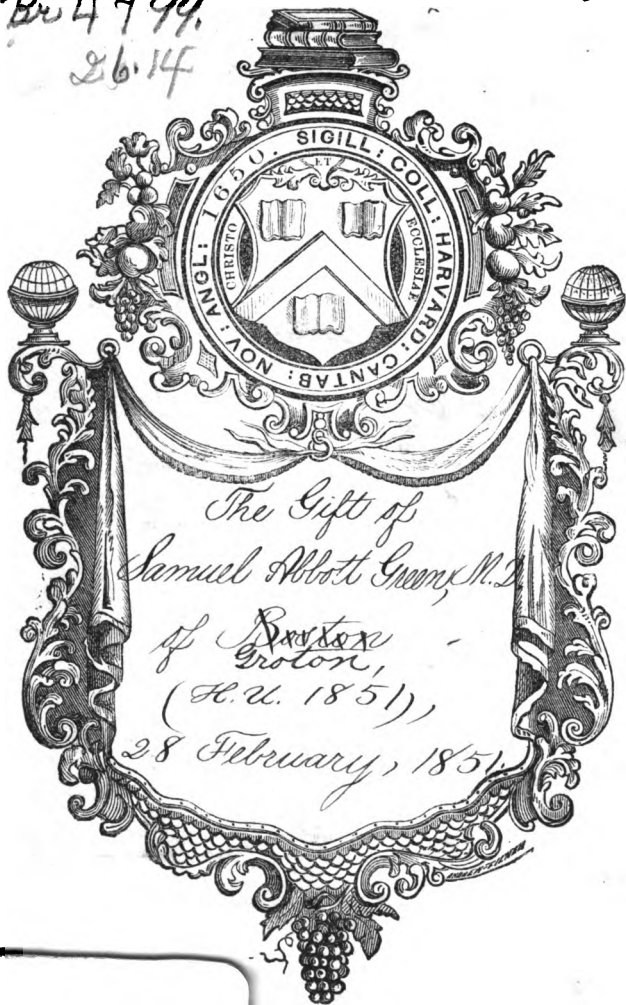 Br 4799.
26.14
SIGILL: COLL: HARVARD: CANTAB: NOV: ANGL: 1650.
ET
CHRISTO
ECCLESIAE
The Gift of
Samuel Abbott Green, M.D
of Boston
Groton,
(H.U. 1851),
28 February, 1851.